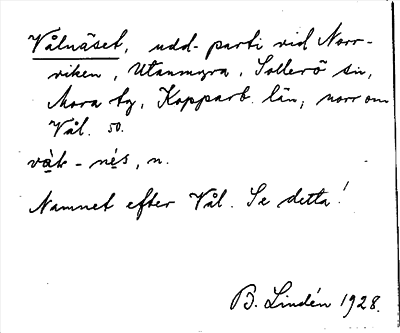 Vålnäset, udd-parti vid Norr-
viken, Utanmyra, Sollerö sn,
Mora tg, Kopparb. län, norr om
Vål. 50.
nés, n.
Namnet efter Vål. Se detta!
B. Lindén 1928.